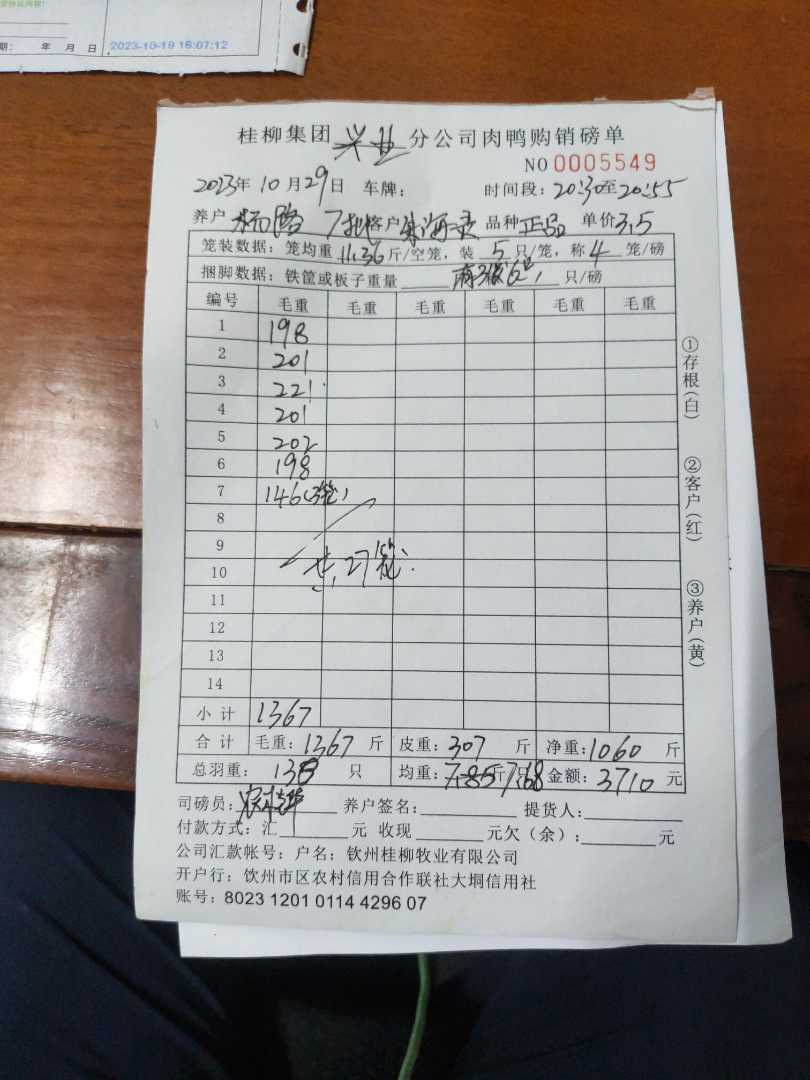 期： 年 月 日 2023-10-19 16:07:12
桂柳集团兴业分公司肉鸭购销磅单
NO 0005549
2023年10月29日 车牌： 时间段：20:30至20:55
养户 7批 客户 品种 正品 单价 3.5
笼装数据：笼均重 11.36 斤/空笼，装 5 只/笼，称 4 笼/磅
捆脚数据：铁筐或板子重量 只/磅
编号 毛重 毛重 毛重 毛重 毛重 毛重
1 198
2 201
3 221
4 201
5 202
6 198
7 146(3笼)
8
9
10 共27笼
11
12
13
14
小计 1367
合计 毛重：1367 斤 皮重：307 斤 净重：1060 斤
总羽重： 只 均重：7.85 7.68 斤/只 金额：3710 元
司磅员： 养户签名： 提货人：
付款方式：汇 元 收现 元欠（余）： 元
公司汇款帐号：户名：钦州桂柳牧业有限公司
开户行：钦州市区农村信用合作联社大垌信用社
账号：8023 1201 0114 4296 07
①存根(白)
②客户(红)
③养户(黄)